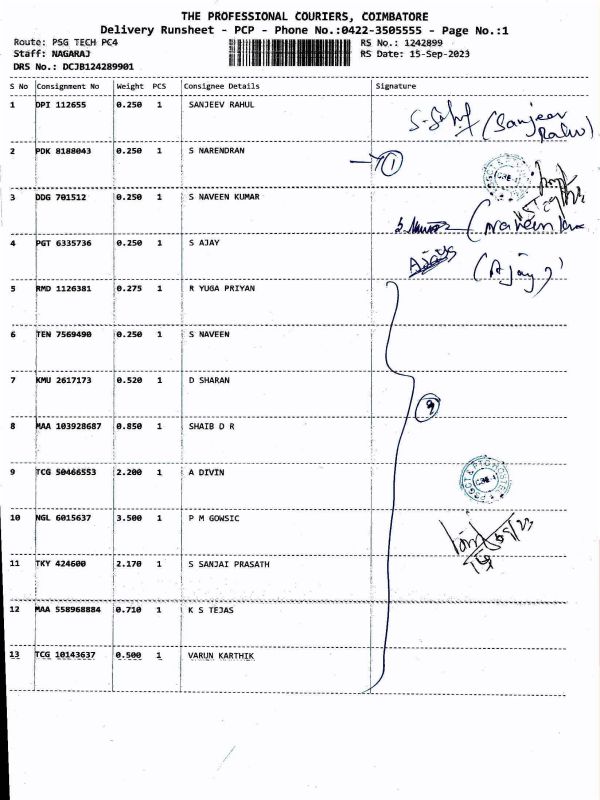 THE PROFESSIONAL COURIERS, COIMBATORE
Delivery Runsheet - PCP - Phone No.:0422-3505555 - Page No.:1
Route: PSG TECH PC4 RS No.: 1242899
Staff: NAGARAJ RS Date: 15-Sep-2023
DRS No.: DCJB124289901
S No Consignment No Weight PCS Consignee Details Signature
1 DPI 112655 0.250 1 SANJEEV RAHUL
(Sanjeev
Rahul)
2 PDK 8188043 0.250 1 S NARENDRAN
1
3 DDG 701512 0.250 1 S NAVEEN KUMAR
4 PGT 6335736 0.250 1 S AJAY
Ajay (Ajay)
5 RMD 1126381 0.275 1 R YUGA PRIYAN
6 TEN 7569490 0.250 1 S NAVEEN
7 KMU 2617173 0.520 1 D SHARAN
9
8 MAA 103928687 0.850 1 SHAIB D R
9 TCG 50466553 2.200 1 A DIVIN
10 NGL 6015637 3.500 1 P M GOWSIC
11 TKY 424600 2.170 1 S SANJAI PRASATH
12 MAA 558968884 0.710 1 K S TEJAS
13 TCG 10143637 0.500 1 VARUN KARTHIK